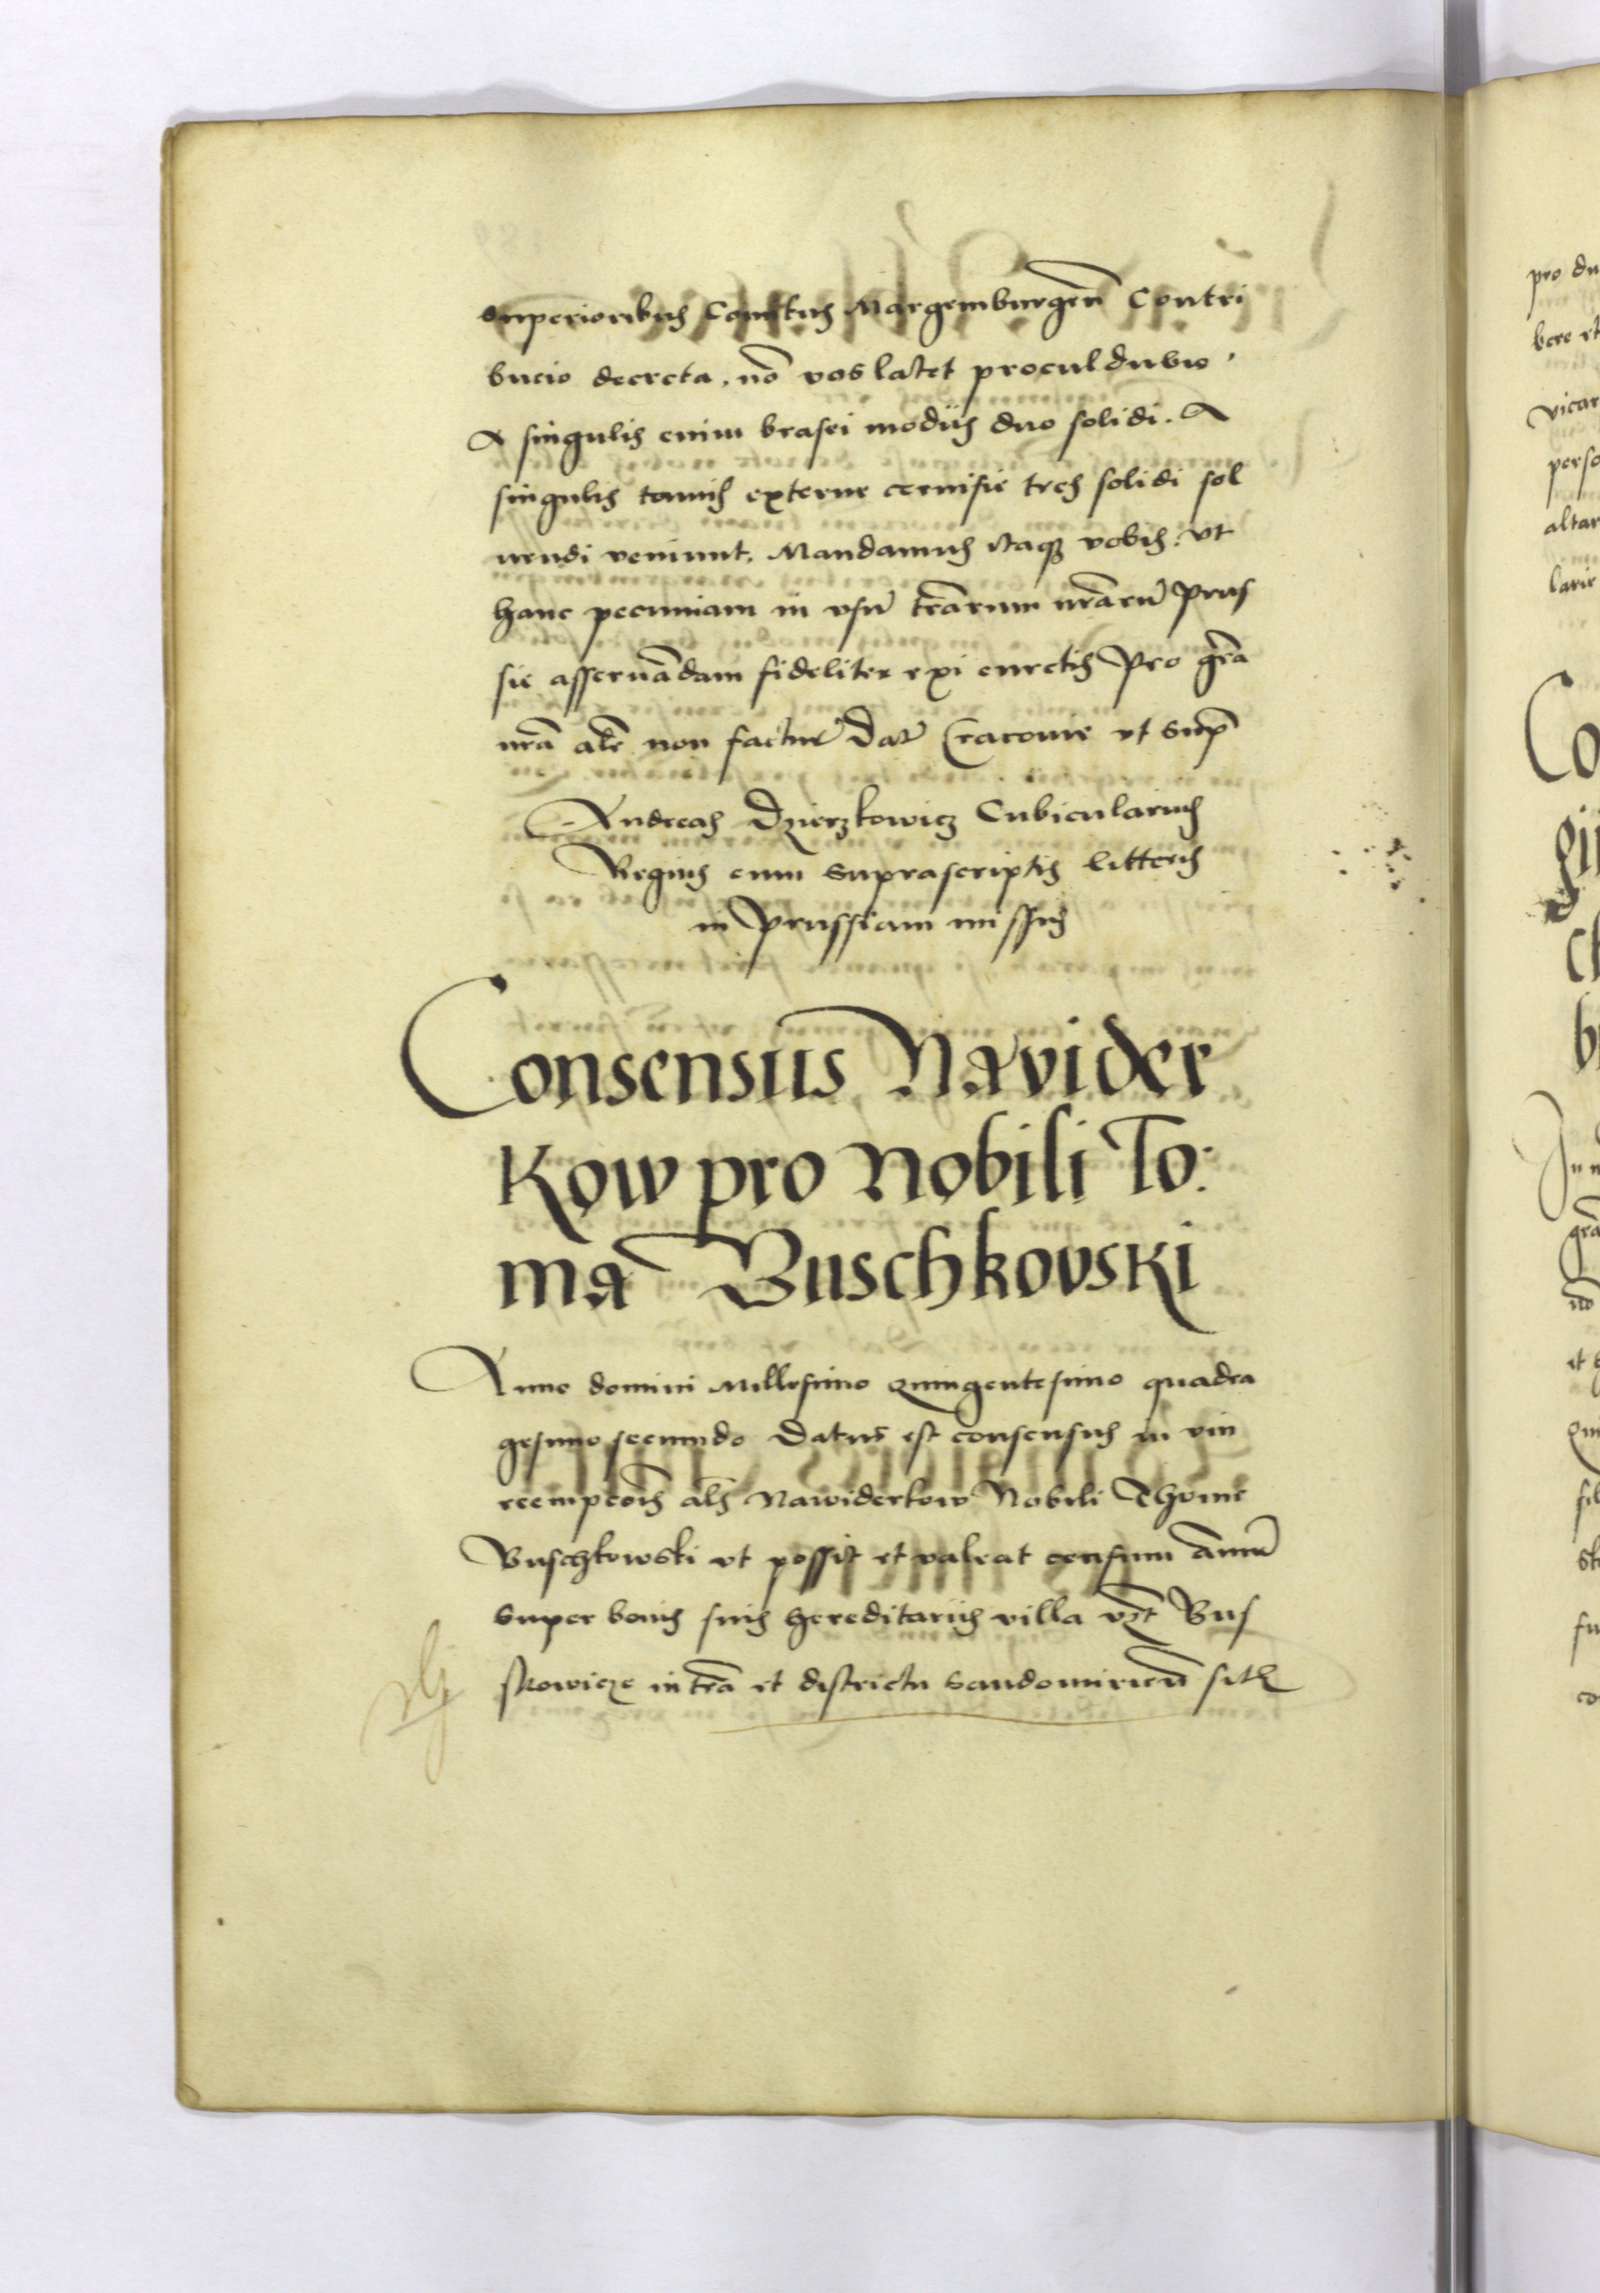 superioribus Comitiis Margemburgen̄ Contri
bucio decreta, nō vos latet procul dubio.
A singulis enim brasei modiis duo solidi. A
singulis tonnis externe cervisie tres solidi sol
vendi veniunt. Mandamus itaqʒ vobis: vt
hanc pecuniam in vsū trārum nrārū Prus
sie asservādam fideliter exi curetis Pro grā
nrā alr̄ non factur̄ Dat̄ Cracovie vt sup̄
Andreas Dzierzkowicz Cubicularius
Regius cum suprascriptis litteris
in Prussiam missus
Consensus Navider
kow pro Nobili To:
ma Buschkovski
Anno domini Millesimo quingentesimo quadra
gesimo secundo Datus est consensus in vin
reempcōis als Nawiderkow Nobili Thome
Buschkowski vt possit et valeat censum annū
super bonis suis hereditariis villa vʒt Bus
skowicze in trā et districtu Sandomirien̄ sitꝭ
pro du
bere et
vicar
perso
altar
larie
Co
gii
cl
b
In n
grā
nō
et
Qui
fil
sk
fu
co